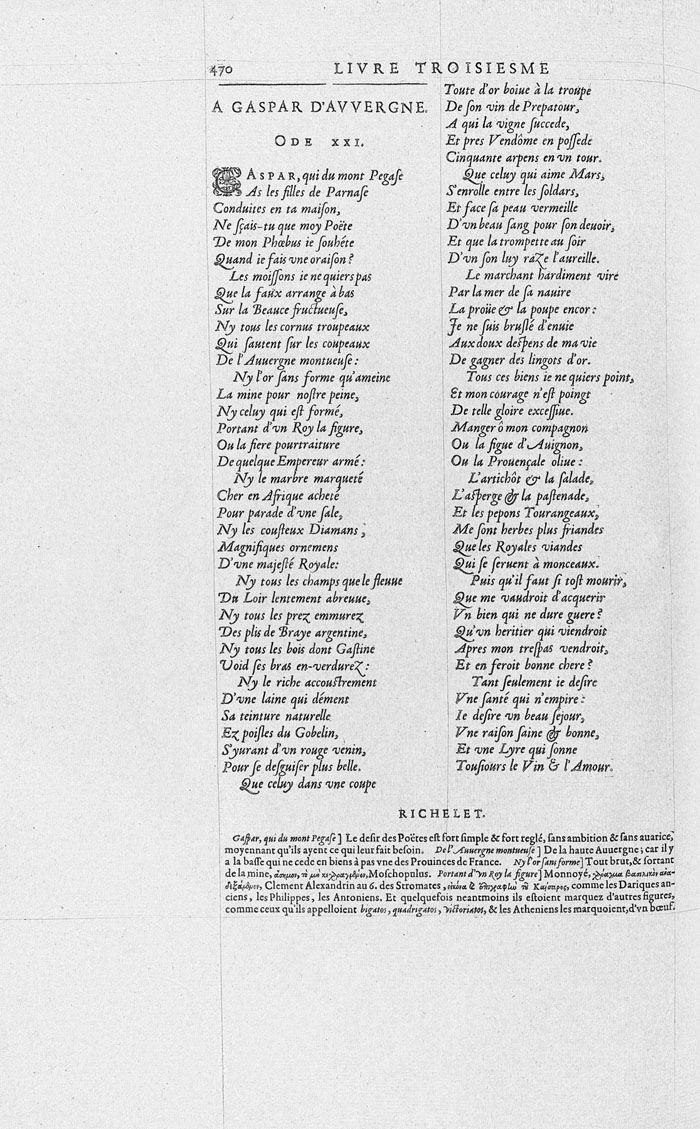 470 LIVRE TROISIESME
A GASPAR D'AVVERGNE.
ODE XXI.
GASPAR, qui du mont Pegaſe
As les filles de Parnaſe
Conduites en ta maiſon,
Ne ſçais-tu que moy Poëte
De mon Phœbus ie ſouhéte
Quand ie fais vne oraiſon?
Les moiſſons ie ne quiers pas
Que la faux arrange à bas
Sur la Beauce fructueuſe,
Ny tous les cornus troupeaux
Qui ſautent ſur les coupeaux
De l'Auuergne montueuſe:
Ny l'or ſans forme qu'ameine
La mine pour noſtre peine,
Ny celuy qui eſt formé,
Portant d'vn Roy la figure,
Ou la fiere pourtraiture
De quelque Empereur armé:
Ny le marbre marqueté
Cher en Afrique acheté
Pour parade d'vne ſale,
Ny les couſteux Diamans,
Magnifiques ornemens
D'vne majeſté Royale:
Ny tous les champs que le fleuue
Du Loir lentement abreuue,
Ny tous les prez emmurez
Des plis de Braye argentine,
Ny tous les bois dont Gaſtine
Void ſes bras en-verdurez:
Ny le riche accouſtrement
D'vne laine qui dément
Sa teinture naturelle
Ez poiſles du Gobelin,
S'yurant d'vn rouge venin,
Pour ſe deſguiſer plus belle.
Que celuy dans vne coupe
Toute d'or boiue à la troupe
De ſon vin de Prepatour,
A qui la vigne ſuccede,
Et pres Vendôme en poſſede
Cinquante arpens en vn tour.
Que celuy qui aime Mars,
S'enrolle entre les ſoldars,
Et face ſa peau vermeille
D'vn beau ſang pour ſon deuoir,
Et que la trompette au ſoir
D'vn ſon luy raze l'aureille.
Le marchant hardiment vire
Par la mer de ſa nauire
La proüe & la poupe encor:
Je ne ſuis bruſlé d'enuie
Aux doux deſpens de ma vie
De gagner des lingots d'or.
Tous ces biens ie ne quiers point,
Et mon courage n'eſt poingt
De telle gloire exceſſiue.
Manger ô mon compagnon
Ou la figue d'Auignon,
Ou la Prouençale oliue:
L'artichôt & la ſalade,
L'aſperge & la paſtenade,
Et les pepons Tourangeaux,
Me ſont herbes plus friandes
Que les Royales viandes
Qui ſe ſeruent à monceaux.
Puis qu'il faut ſi toſt mourir,
Que me vaudroit d'acquerir
Vn bien qui ne dure guere?
Qu'vn heritier qui viendroit
Apres mon treſpas vendroit,
Et en feroit bonne chere?
Tant ſeulement ie deſire
Vne ſanté qui n'empire:
Ie deſire vn beau ſejour,
Vne raiſon ſaine & bonne,
Et vne Lyre qui ſonne
Touſiours le Vin & l'Amour.
RICHELET.
Gaſpar, qui du mont Pegaſe] Le deſir des Poëtes eſt fort ſimple & fort reglé, ſans ambition & ſans auarice,
moyennant qu'ils ayent ce qui leur fait beſoin. De l'Auuergne montueuſe] De la haute Auuergne; car il y
a la baſſe qui ne cede en biens à pas vne des Prouinces de France. Ny l'or ſans forme] Tout brut, & ſortant
de la mine, Moſchopulus. Portant d'vn Roy la figure] Monnoyé,
Clement Alexandrin au 6. des Stromates, comme les Dariques an-
ciens, les Philippes, les Antoniens. Et quelquefois neantmoins ils eſtoient marquez d'autres figures,
comme ceux qu'ils appelloient bigatos, quadrigatos, victoriatos, & les Atheniens les marquoient, d'vn bœuf.